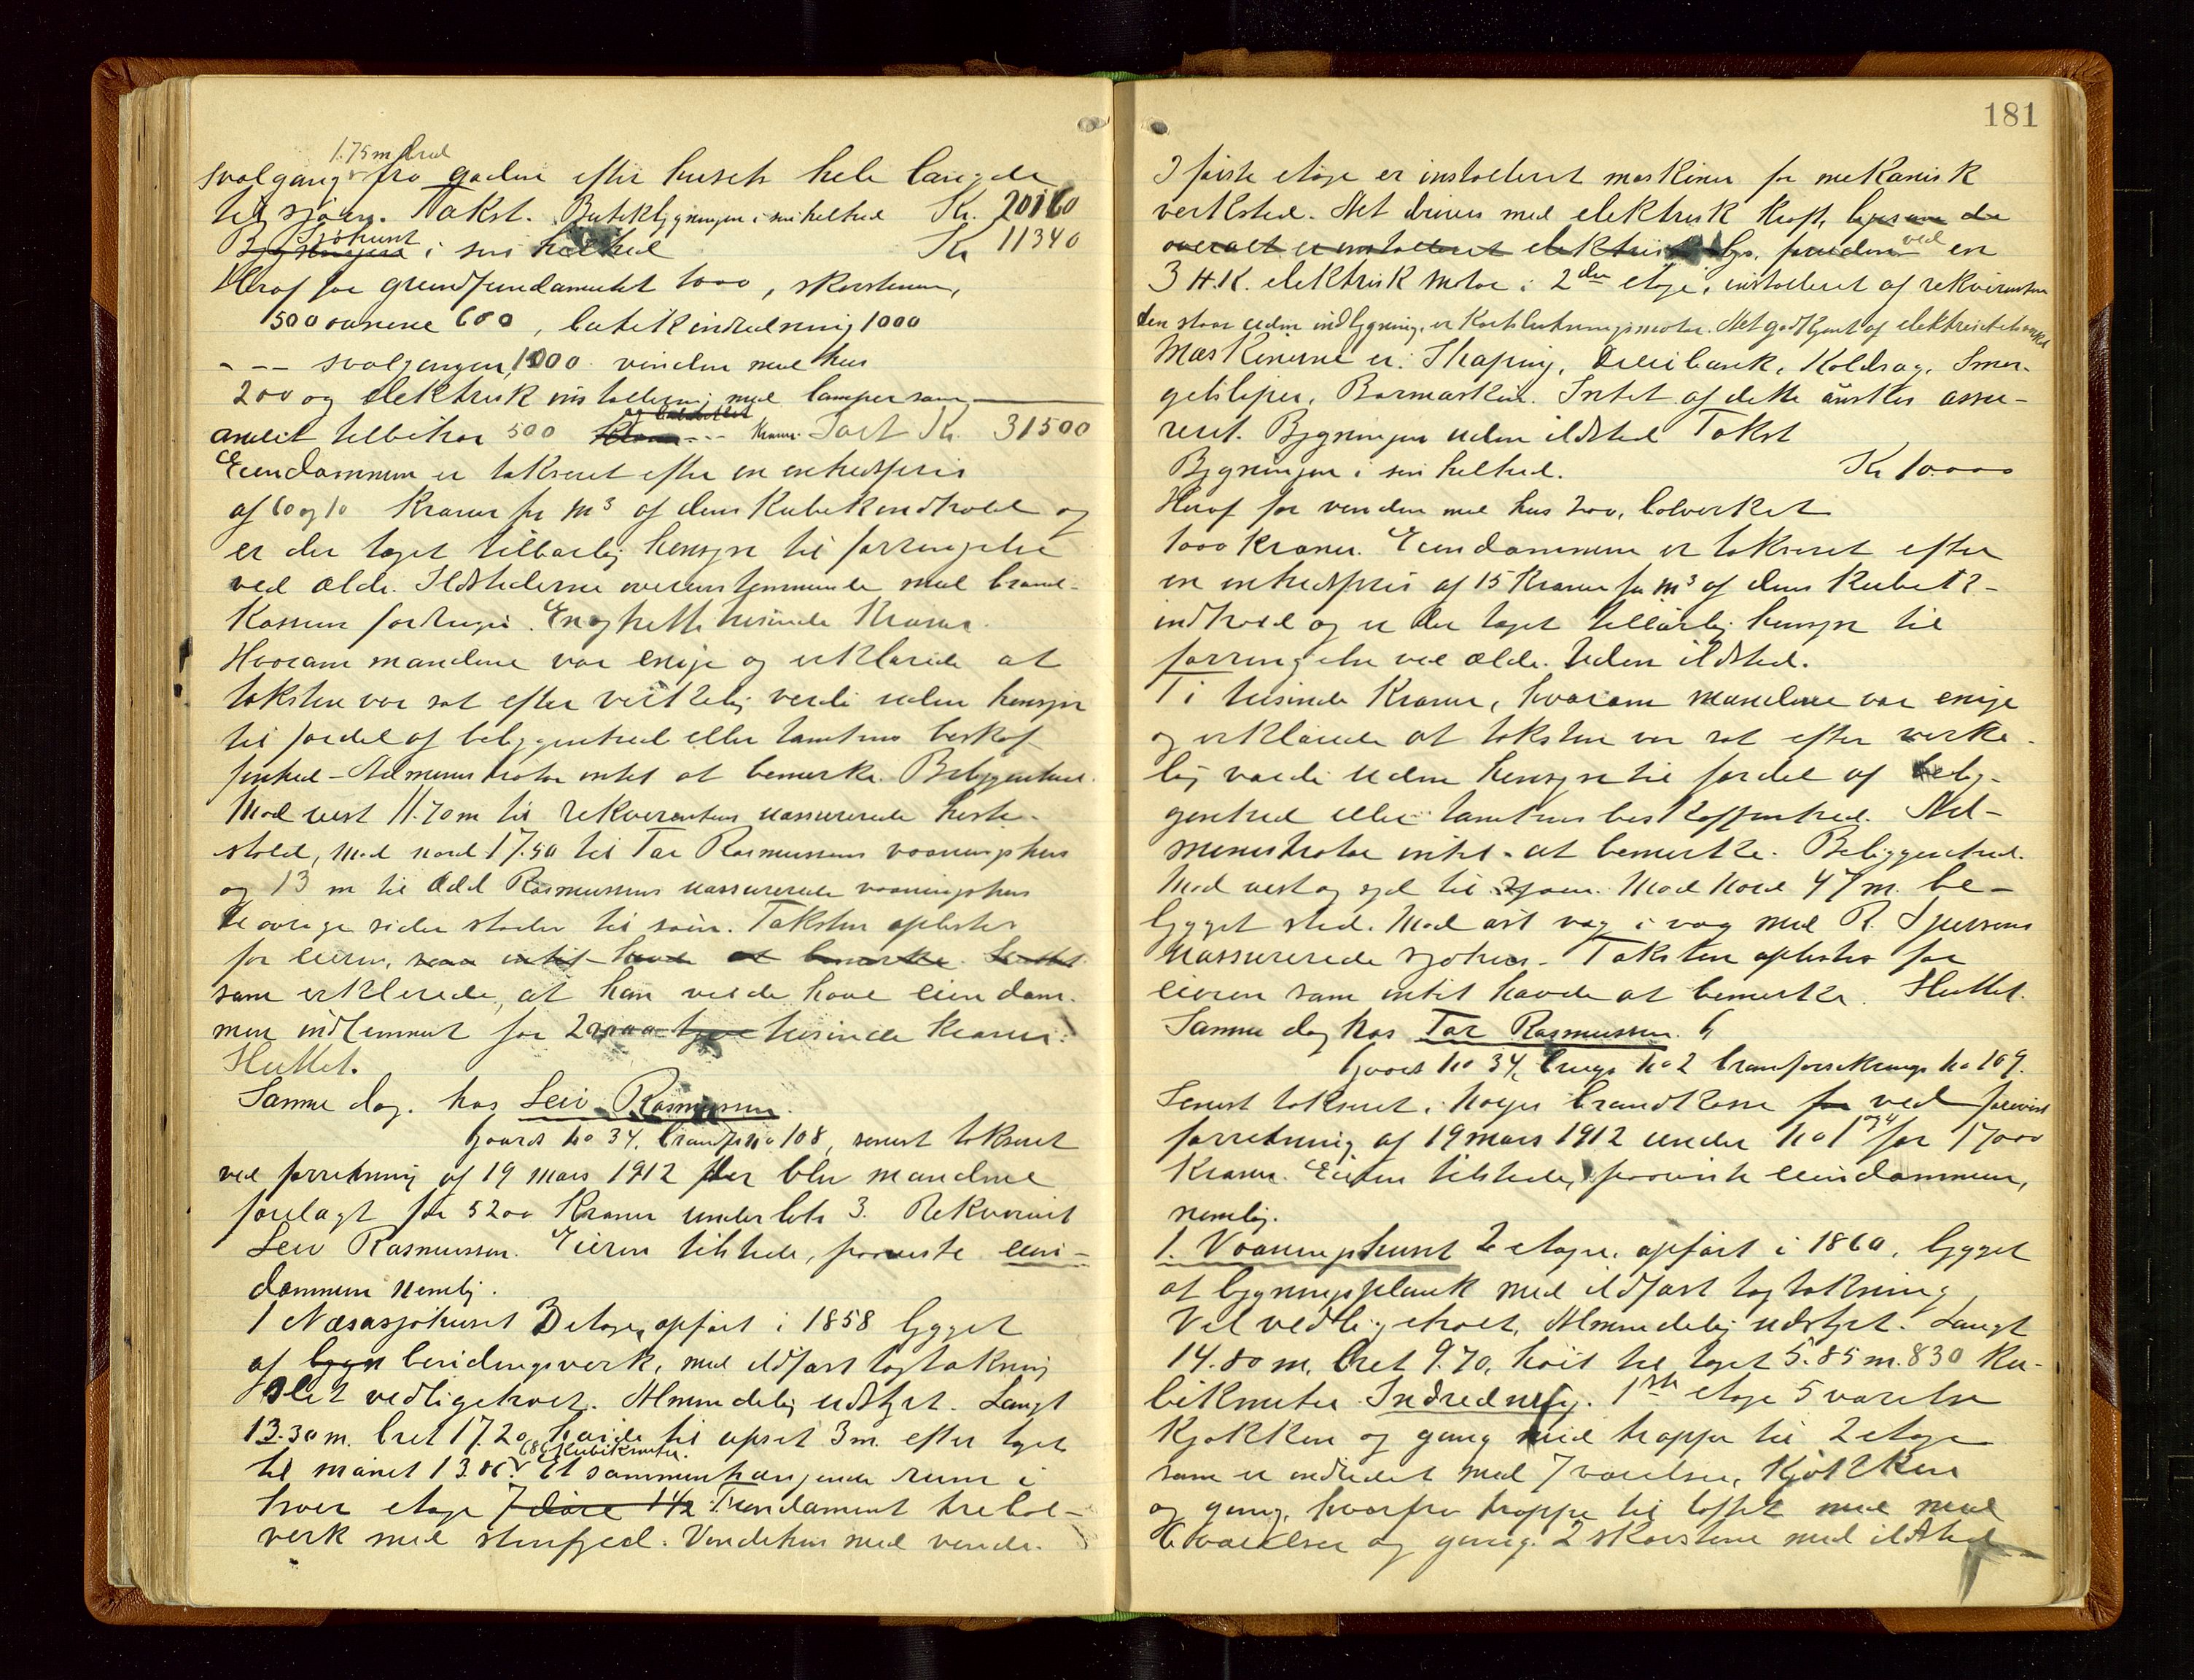 1.75 m bred
svalgang fra gaden efter husets hele længde
til sjøen. Takst. Butikbygningen i sin helhed Kr. 20160
Sjøhuset
Bygningen i sin helhed Kr 11340
Heraf for grundfundamentet 1000, skorstenen,
500 ovnene 600, butikindredning 1000
- -- svalgangen, 1000 vinden med hus
200 og elektrisk installering med lamper sam
andet tilbehør 500 Kroner Sart Kr. 31500
Eiendommen er takseret efter en enhedspris
af 60 og 10 Kroner pr m³ af dens Kubikindhold og
er der taget tilbørlig hensyn til forringelse
ved ælde. Ildstederne overensstemmende med brand-
Kassens fordringer. En og trette tusinde Kroner.
Hvorom mændene var enige og erklærede at
taksten var sat efter virkelig verdi uden hensyn
til fordel af beliggenhed eller tomtens beskaf-
fenhed - Administrator intet at bemerke. Beliggenhed.
Mod vest 11.70 m til rekvirentens uassurerede heste-
stald, mod nord 17.50 til Tor Rasmussens vaaningshus
og 13 m til Odd Rasmussens uassurerede vaaningshus
De øvrige sider støder til søen. Taksten oplæstes
for eieren, som intet havde at bemerke. Sluttet
som erklærede, at han vilde have eiendom-
men indlemmet for tyve tusinde kroner.
Sluttet.
Samme dag. hos Leiv Rasmussen.
Gaards no 34, brandf. no 108, senest takseret
ved forretning af 19 mars 1912 der blev mændene
forelagt for 5200 Kroner under lit 3. Rekvirent
Leiv Rasmussen. Eieren tilstede, foreviste eien-
dommen nemlig.
1 Næsasjøhuset 3 etager, opført i 1858 bygget
af bygn bindingsverk, med ildfast tagtækning
Slet vedligeholdt. Almindelig udstyrt. Langt
13.30 m. bret 17.20, høide til opset 3 m. efter taget
686 Kubikmeter.
til mønet 13.00. Et sammenhængende rum i
hver etage 7 døre 1½ Fundament trebol-
verk med stenfyld. Vindehus med vinde.
181
I første etage er installeret maskiner for mekanisk
verksted. Det drives med elektrisk kraft, ligesom der
overalt er installeret elektrisk lys, foruden ved en
3 H.K. elektrisk motor i 2den etage, installeret af rekvirenten
den staar uden indbygning, er Kortslutningsmotor. Det godkjent af elektricitetsverket
Maskinerne er: Shaping, Dreibænk, Koldsag, Smer-
gelsliper, Bormaskin. Intet af dette ønskes assu-
reret. Bygningen uden ildsted Takst
Bygningen i sin helhed. Kr 10.000
Heraf for vinden med hus 200, bolverket
1000 kroner. Eiendommen er takseret efter
en enhedspris af 15 Kroner pr m³ af dens Kubik-
indhold og er der taget tilbørlig hensyn til
forringelse ved ælde. Uden ildsted.
Ti tusinde Kroner, hvorom mændene var enige
og erklærede at taksten var sat efter virke-
lig værdi uden hensyn til fordel af belig-
genhed eller tomtens beskaffenhed. Ad-
ministrator intet at bemerke. Beliggenhed.
Mod vest og syd til sjøen. Mod Nord 47 m. be-
bygget sted. Mod øst væg i væg med R.
uassurerede sjøhus. Taksten oplæstes for
eieren som intet havde at bemerke. Sluttet.
Samme dag hos Tor Rasmussen.
Gaards no 34, brugs no 2 brandforsikrings no 109.
Senest takseret i Norges brandkasse for ved
forretning af 19 mars 1912 under no 1 og 4 for 17000
Kroner. Eieren tilstede, foreviste eiendommen,
nemlig.
1. Vaaningshuset 2 etager, opført i 1860, bygget
af bygningsplank med ildfast tagtækning
Vel vedligeholdt, Almindelig udstyret. Langt
14.80 m, bret 9.70, høit til taget 5.85 m. 830 Ku-
bikmeter Indredning. 1ste etage 5 værelser
Kjøkken og gang med trappe til 2 etage
som er indredet med 7 værelser, Kjøkken
og gang, hvorfra trappe til loftet med med
6 værelser og gang. 2 skorstene med ildsted